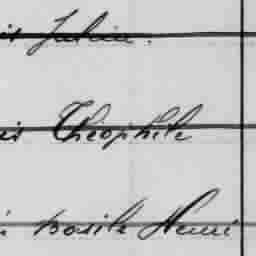 is Julien.
is Théophile
Basile Henri